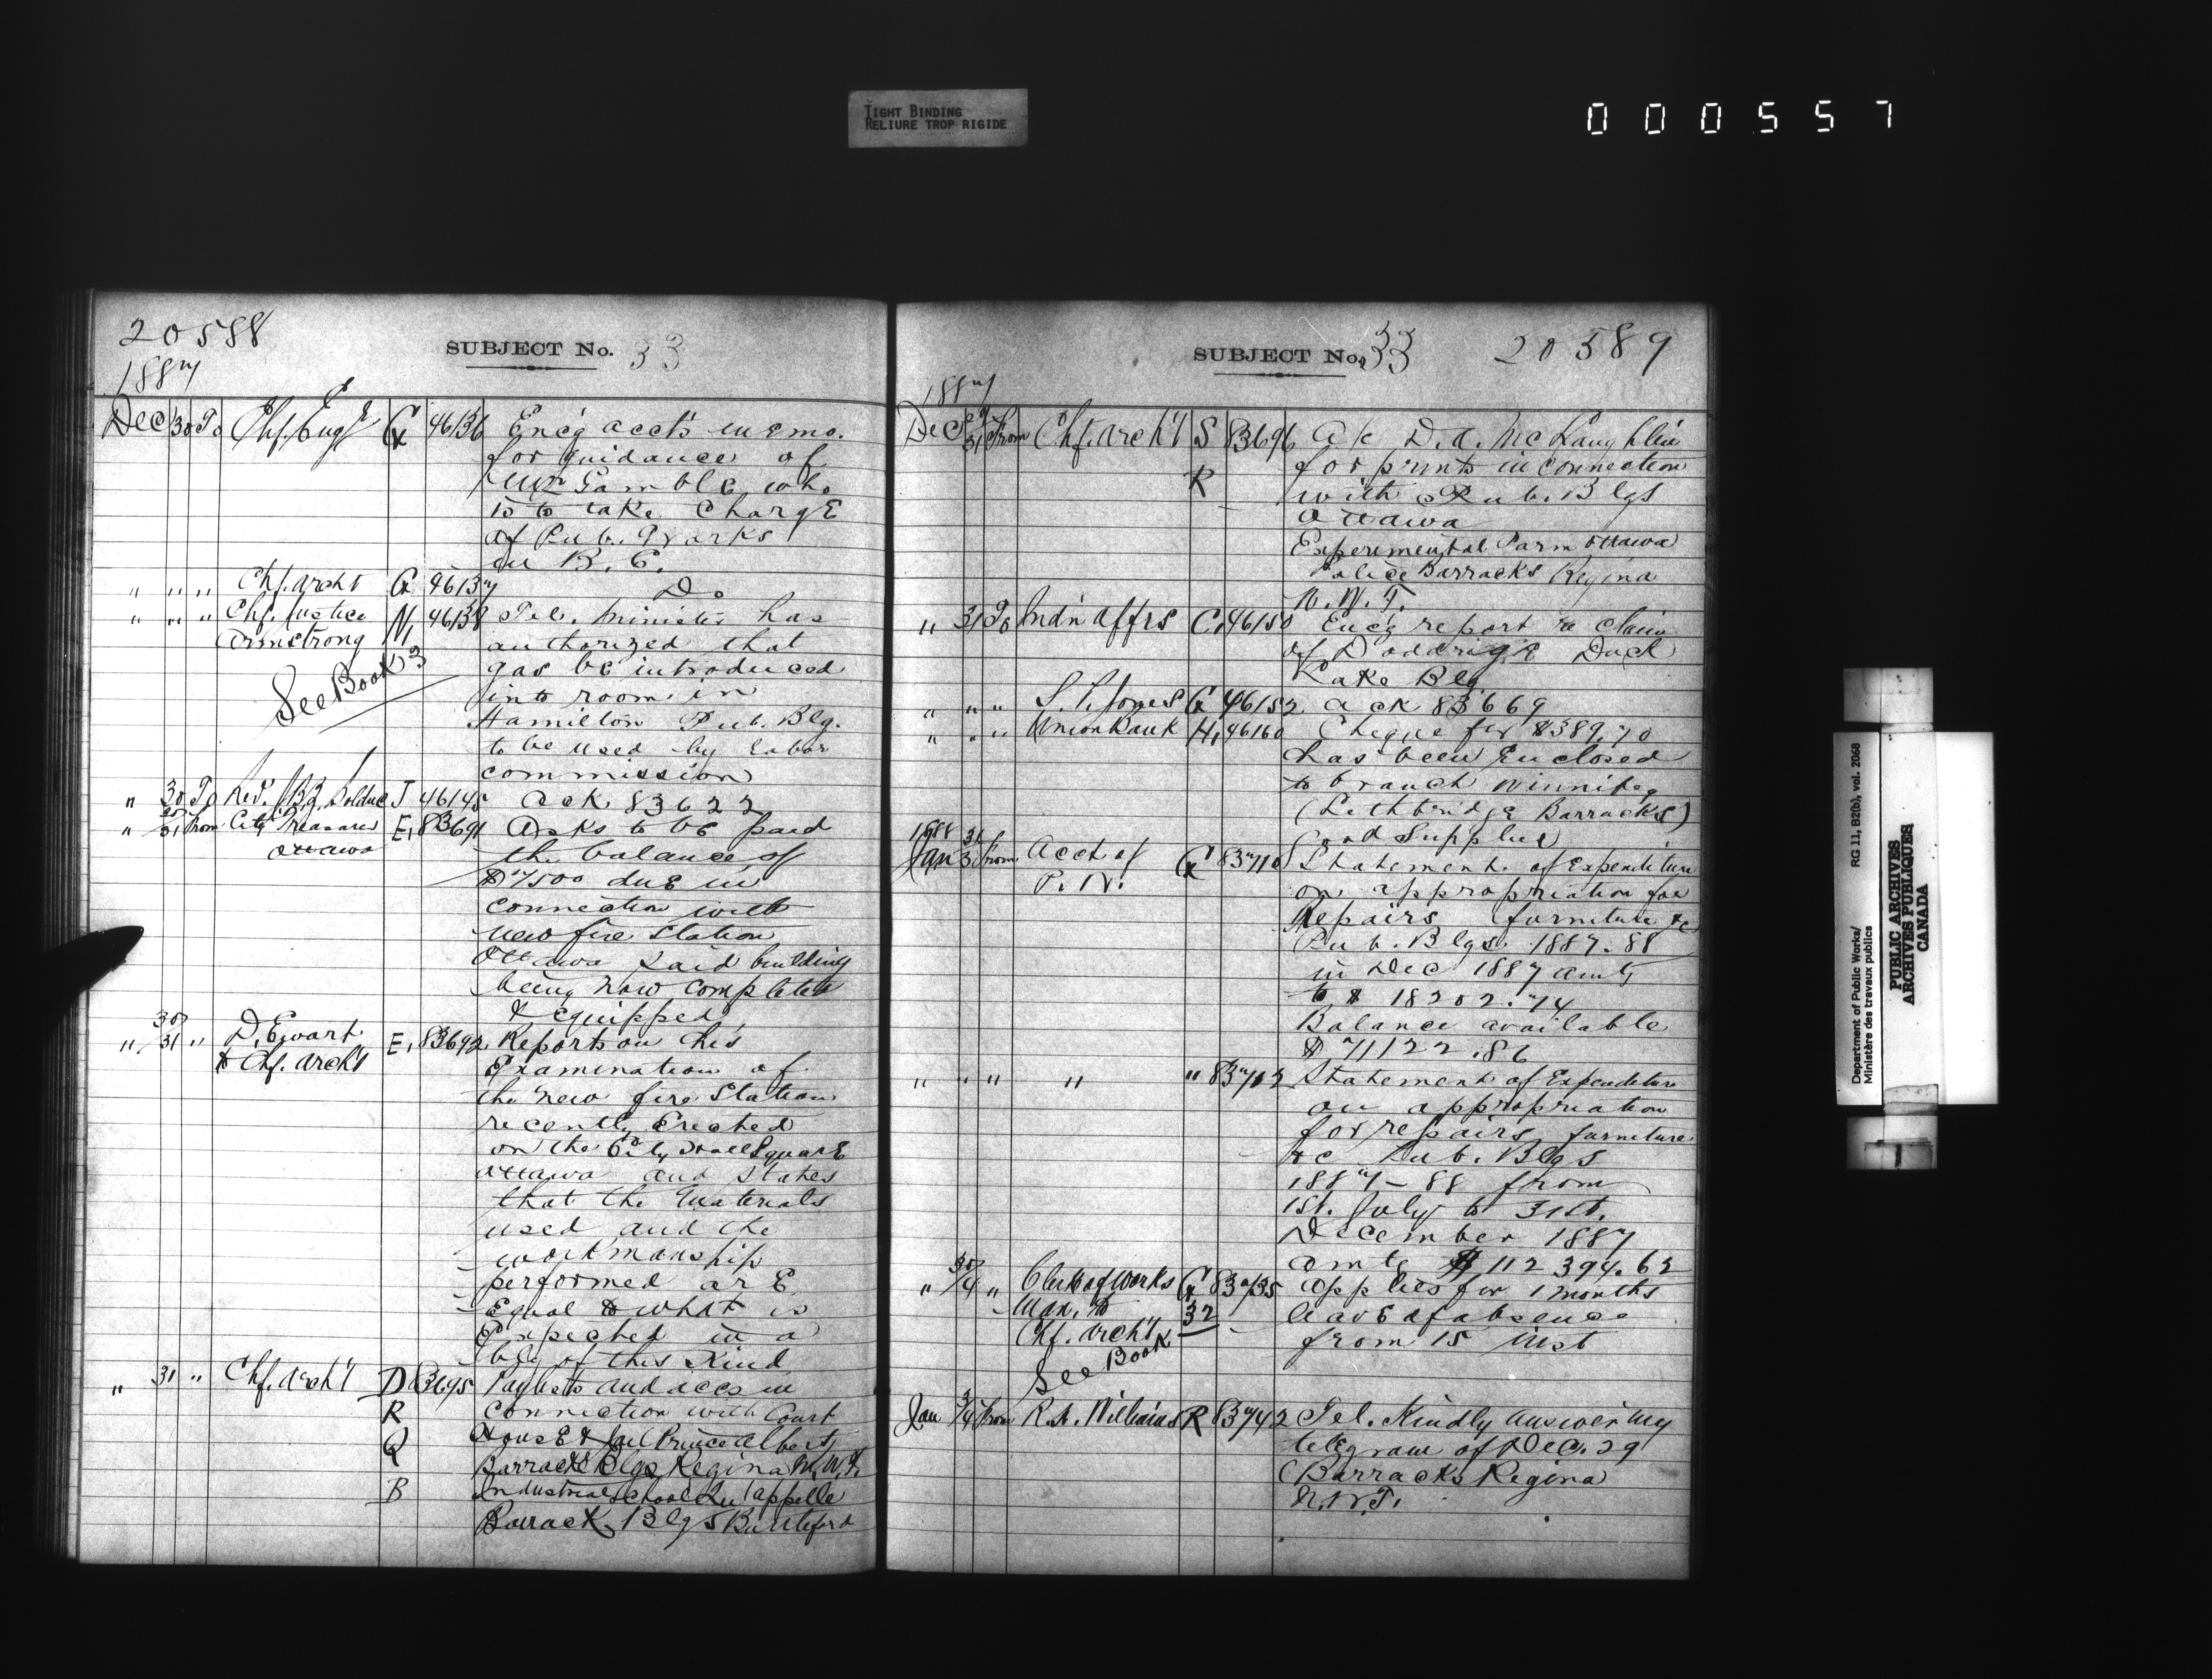 TIGHT BINDING
RELIURE TROP RIGIDE
000557
20588
SUBJECT No. 33
1887
Dec 30 To Chf. Engr G 46136 Enc'g acct's memo.
for guidance of
Mr Gamble who
is to take charge
of Pub. Works
in B. C.
" " " Chf. Archt G 46137 Do
" " " Chf. Justice N, 46138 Tel. Minister has
Armstrong authorized that
See Book 3 gas be introduced
into room in
Hamilton Pub. Blg.
to be used by labor
commission
" 30 To Rev. J.B.Z. Bolduc J 46145 Ack 83622
" 30/31 From City Treasurer E, 83691 Asks to be paid
Ottawa the balance of
$7500 due in
connection with
new fire Station
Ottawa said building
being now completed
& equipped
" 30/31 " D. Ewart E, 83692 Reports on his
to Chf. Arch't Examination of
the new fire Station
recently Erected
on the City Hall Square
Ottawa and states
that the materials
used and the
workmanship
performed are
Equal to what is
Expected in a
blg of this Kind
" 31 " Chf. Arch't D 83695 and accs in
R connection with Court
Q House & Jail Prince Albert
Barracks Blgs Regina N.W.T.
B Industrial School Qu'appelle
Barrack Blgs Battleford
SUBJECT No. 33 20589
1887
Dec 29/31 From Chf. Arch't S 83696 a/c D. A. McLaughlin
R for prints in connection
with Pub. Blgs
Ottawa
Experimental Farm Ottawa
Police Barracks Regina
N. W. T.
" 31 To Ind'n Affrs C, 46150 Enc'g report re claim
of Doddrige Duck
Lake Blg
" " " S. L. Jones G 46152 ack 83669
" " " Union Bank H, 46160 Cheque for $389.70
has been Enclosed
to branch Winnipeg
(Lethbridge Barracks)
Cord Supplied
1888
Jan 31/3 From Acct of G 83710 Statement of Expenditure
P. W. on appropriation for
Repairs furniture &c
Pub. Blgs. 1887-88
in Dec 1887 amtg
to $ 18202.74
Balance available
$ 71122.86
" " " " " 83713 Statement of Expenditure
on appropriation
for repairs furniture
&c Pub. Blgs
1887-88 from
1st. July to 31st.
December 1887
amtg $112394.62
" 30/4 " Clerk of Works G 83735 applies for 1 months
Man. to 32 leave of absence
Chf. Arch't from 15 inst
See Book
Jan 3/4 From R. A. Williams R 83742 Tel. Kindly answer my
telegram of Dec. 29
(Barracks Regina
N.W.T.
Department of Public Works/ RG 11, B2(b), vol. 2068
Ministère des travaux publics
PUBLIC ARCHIVES
ARCHIVES PUBLIQUES
CANADA